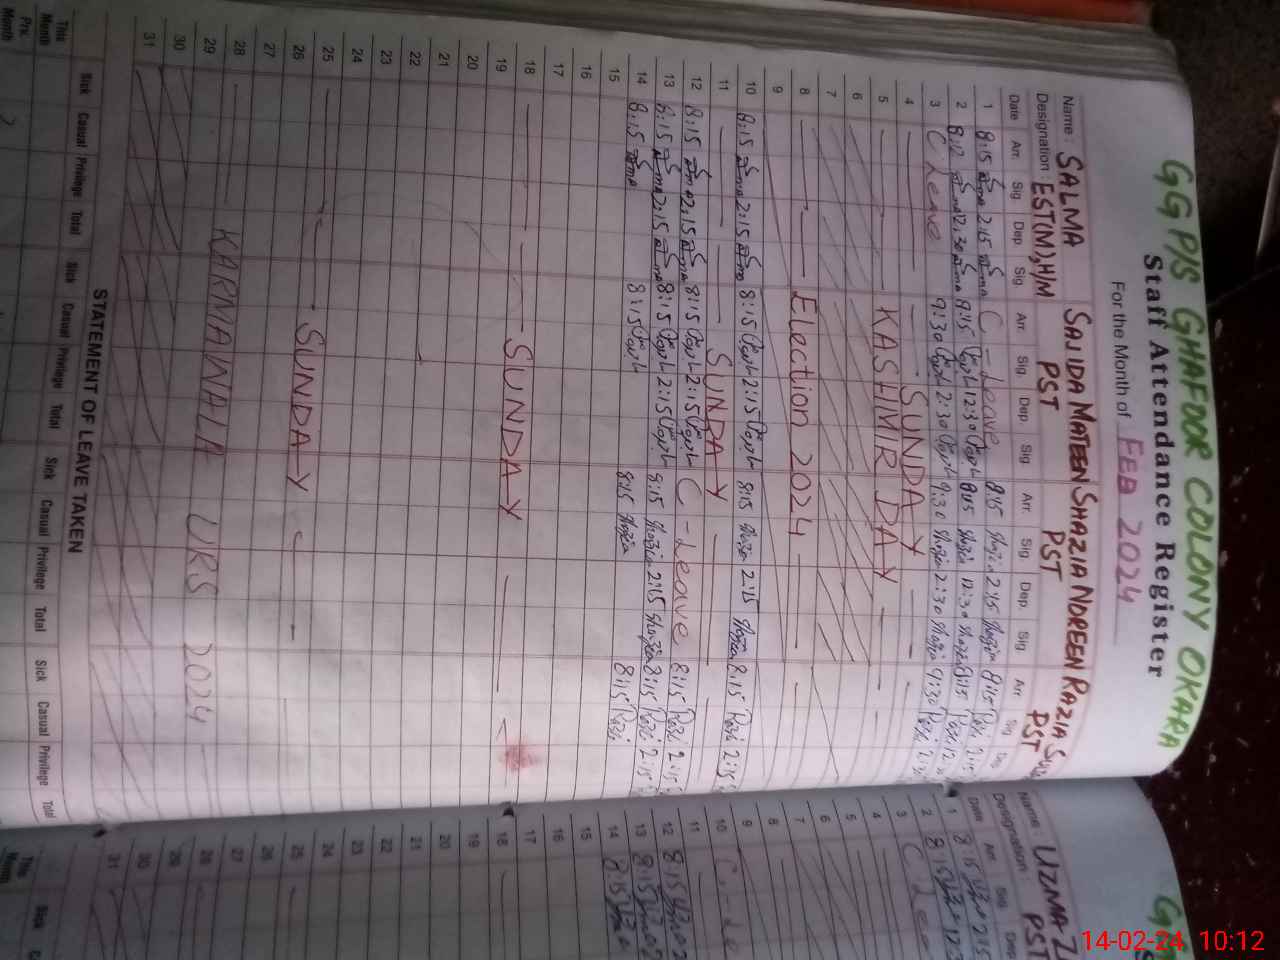 GG P/S GHAFOOR COLONY OKARA
Staff Attendance Register
For the Month of FEB 2024
Name: SALMA SAJIDA MATEEN SHAZIA NOREEN RAZIA
Designation: EST(M),H/M PST PST PST
Date Arr. Sig Dep Sig. Arr. Sig. Dep. Sig Arr. Sig. Dep. Sig. Arr Sig. Dep
1 8:15 2:15 C-Leave 8:15 Shazia 2:15 Shazia 8:15 Razi 2:15
2 8:12 12:30 8:45 12:30 8:15 Shazia 12:30 Shazia 8:15 Razi 12
3 C Leave 9:30 2:30 9:30 Shazia 2:30 Shazia 9:30 Razi 2:3
4 SUNDAY
5 KASHMIR DAY
6
7
8 Election 2024
9
10 8:15 2:15 8:15 2:15 8:15 Shazia 2:15 Shazia 8:15 Razi 2:15
11 SUNDAY
12 8:15 2:15 8:15 2:15 C-Leave 8:15 Razi 2:15
13 8:15 2:15 8:15 2:15 8:15 Shazia 2:15 Shazia 8:15 Razi 2:15
14 8:15 8:15 8:15 Shazia 8:15 Razi
15
16
17
18 SUNDAY
19
20
21
22
23
24
25 SUNDAY
26
27
28 KARMAWALA URS 2024
29
30
31
STATEMENT OF LEAVE TAKEN
Sick Casual Privilege Total Sick Casual Privilege Total Sick Casual Privilege Total Sick Casual Privilege Total
This Month
Prv. Month
Name: UZMA
Designation PST
Date Arr. Sig Dep
1 8:15 2:15
2 8:15 12:3
3 C Lea
4
5
6
7
8
9
10 C.-Le
11
12 8:15 2
13 8:15 2
14 8:15
15
16
17
18
19
20
21
22
23
24
25
26
27
28
29
30
31
Sick
This Month
14-02-24 10:12